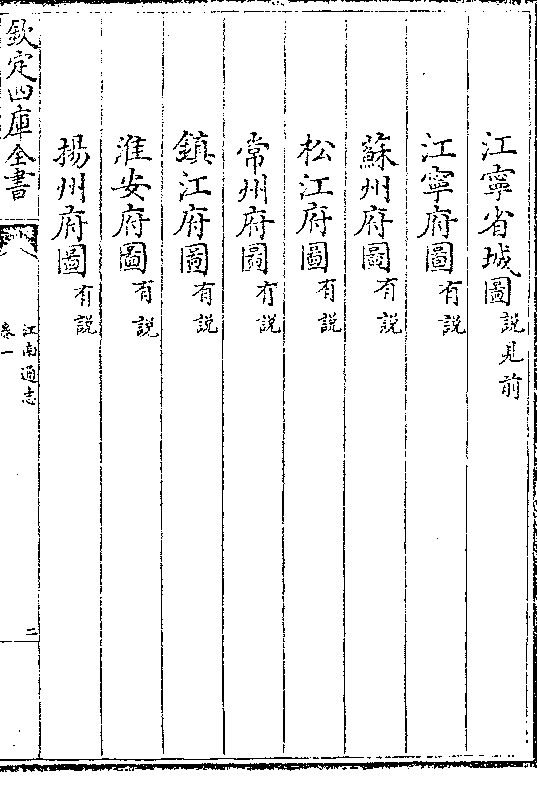 江寧省城圖説見前
江寧府圖有説
蘇州府圖有説
松江府圖有説
常州府圖有説
鎮江府圖有説
淮安府圖有説
揚州府圖有説
欽定四庫全書
江南通志
卷一
二